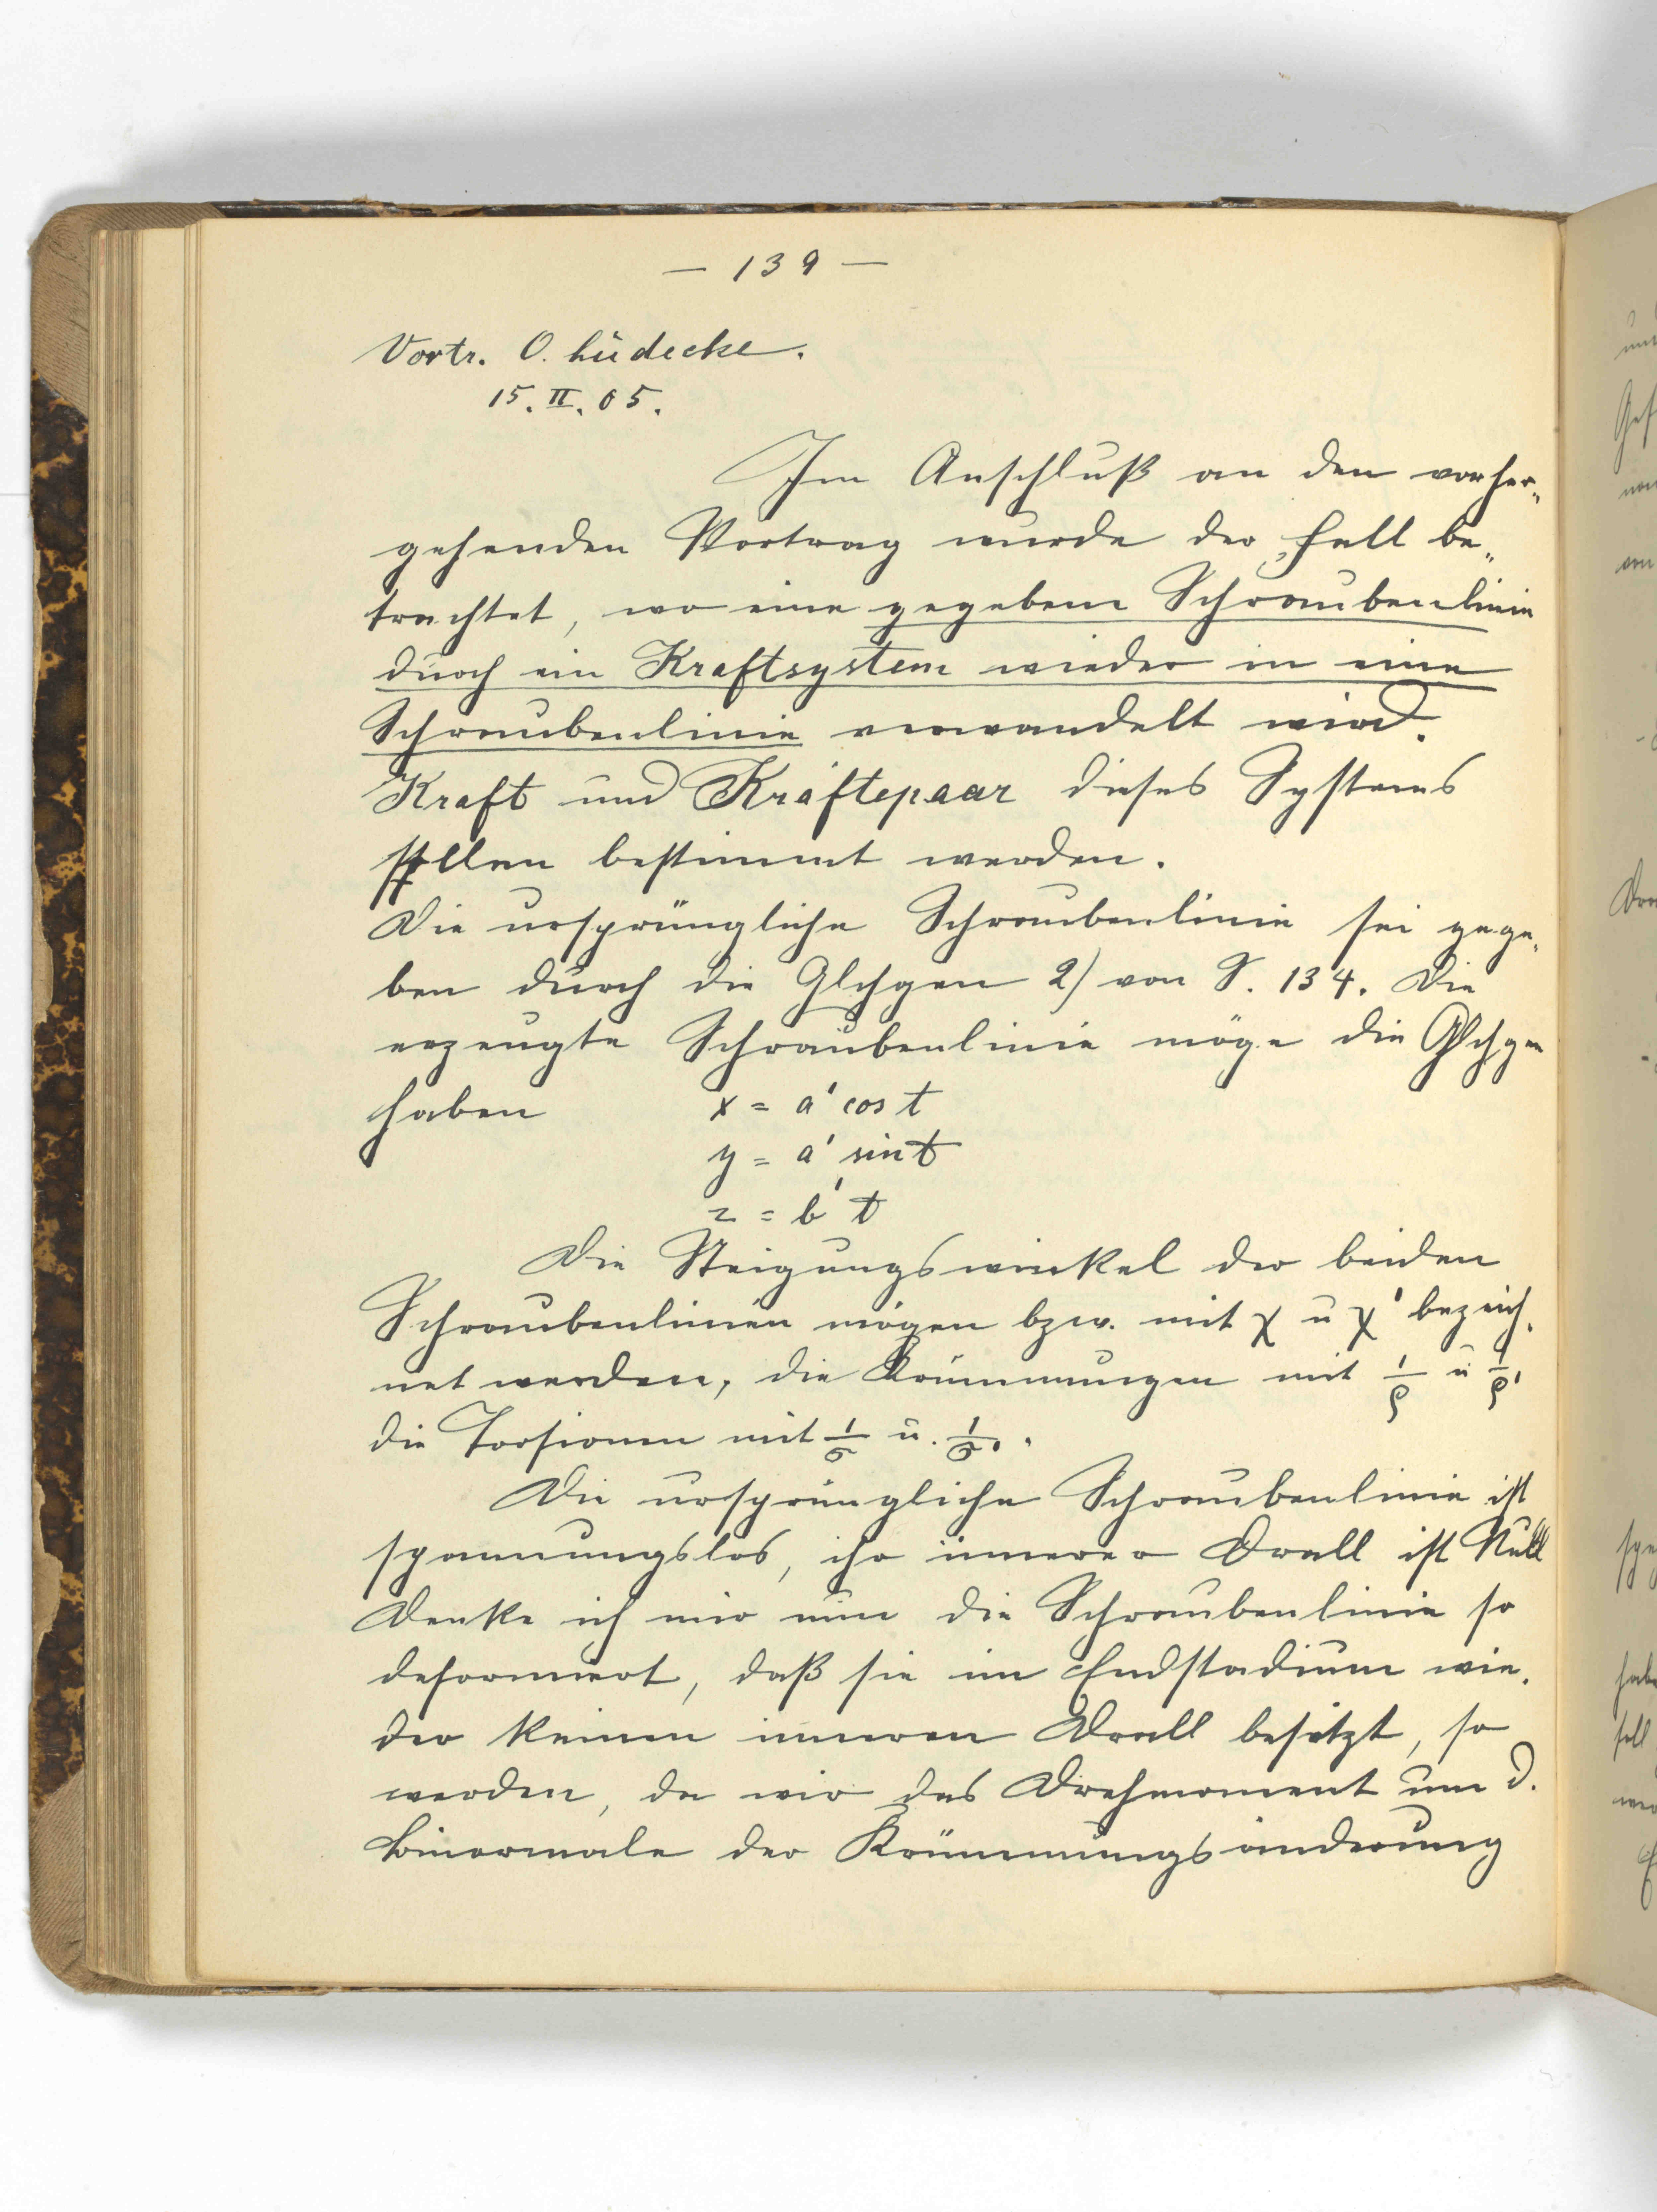 — 139 —
Vortr. O. Lüdecke.
15. II. 05.
Im Anschluß an den vorher„
gehenden Vortrag wurde der Fall be„
trachtet, wo eine gegebene Schraubenlinie
durch ein Kraftsystem wieder in eine
Schraubenlinie verwandelt wird.
Kraft und Kräftepaar dieses Systems
sollen bestimmt werden.
Die ursprüngliche Schraubenlinie sei gege„
ben durch die Glchgen 2) von S. 134. Die
erzeugte Schraubenlinie möge die Glchgen
haben x = a' cos t
y = a' sin t
z = b' t
Die Steigungswinkel der beiden
Schraubenlinien mögen bzw. mit χ u χ' bezeich„
net werden, die Krümmungen mit 1/ρ u 1/ρ'
die Torsionen mit 1/σ u. 1/σ'.
Die ursprüngliche Schraubenlinie ist
spannungslos, ihr innerer Drall ist Null
Denke ich mir nun die Schraubenlinie so
deformiert, daß sie im Endstadium wie„
der keinen inneren Drall besitzt, so
werden, da wir das Drehmoment um d.
Binormale der Krümmungsänderung